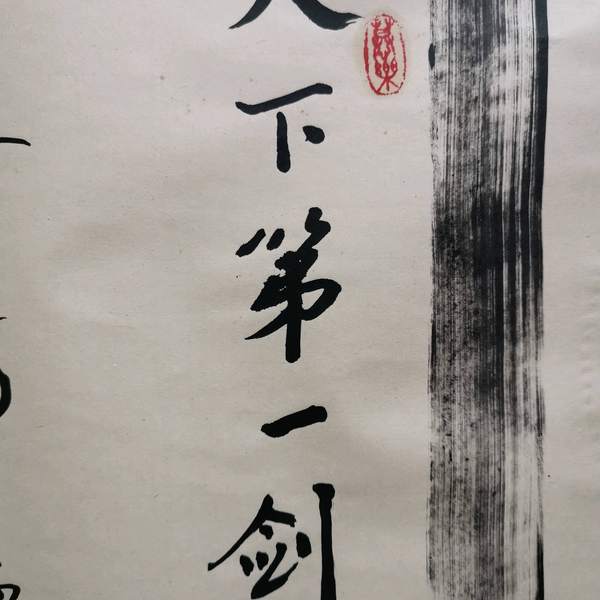 天下第一剑